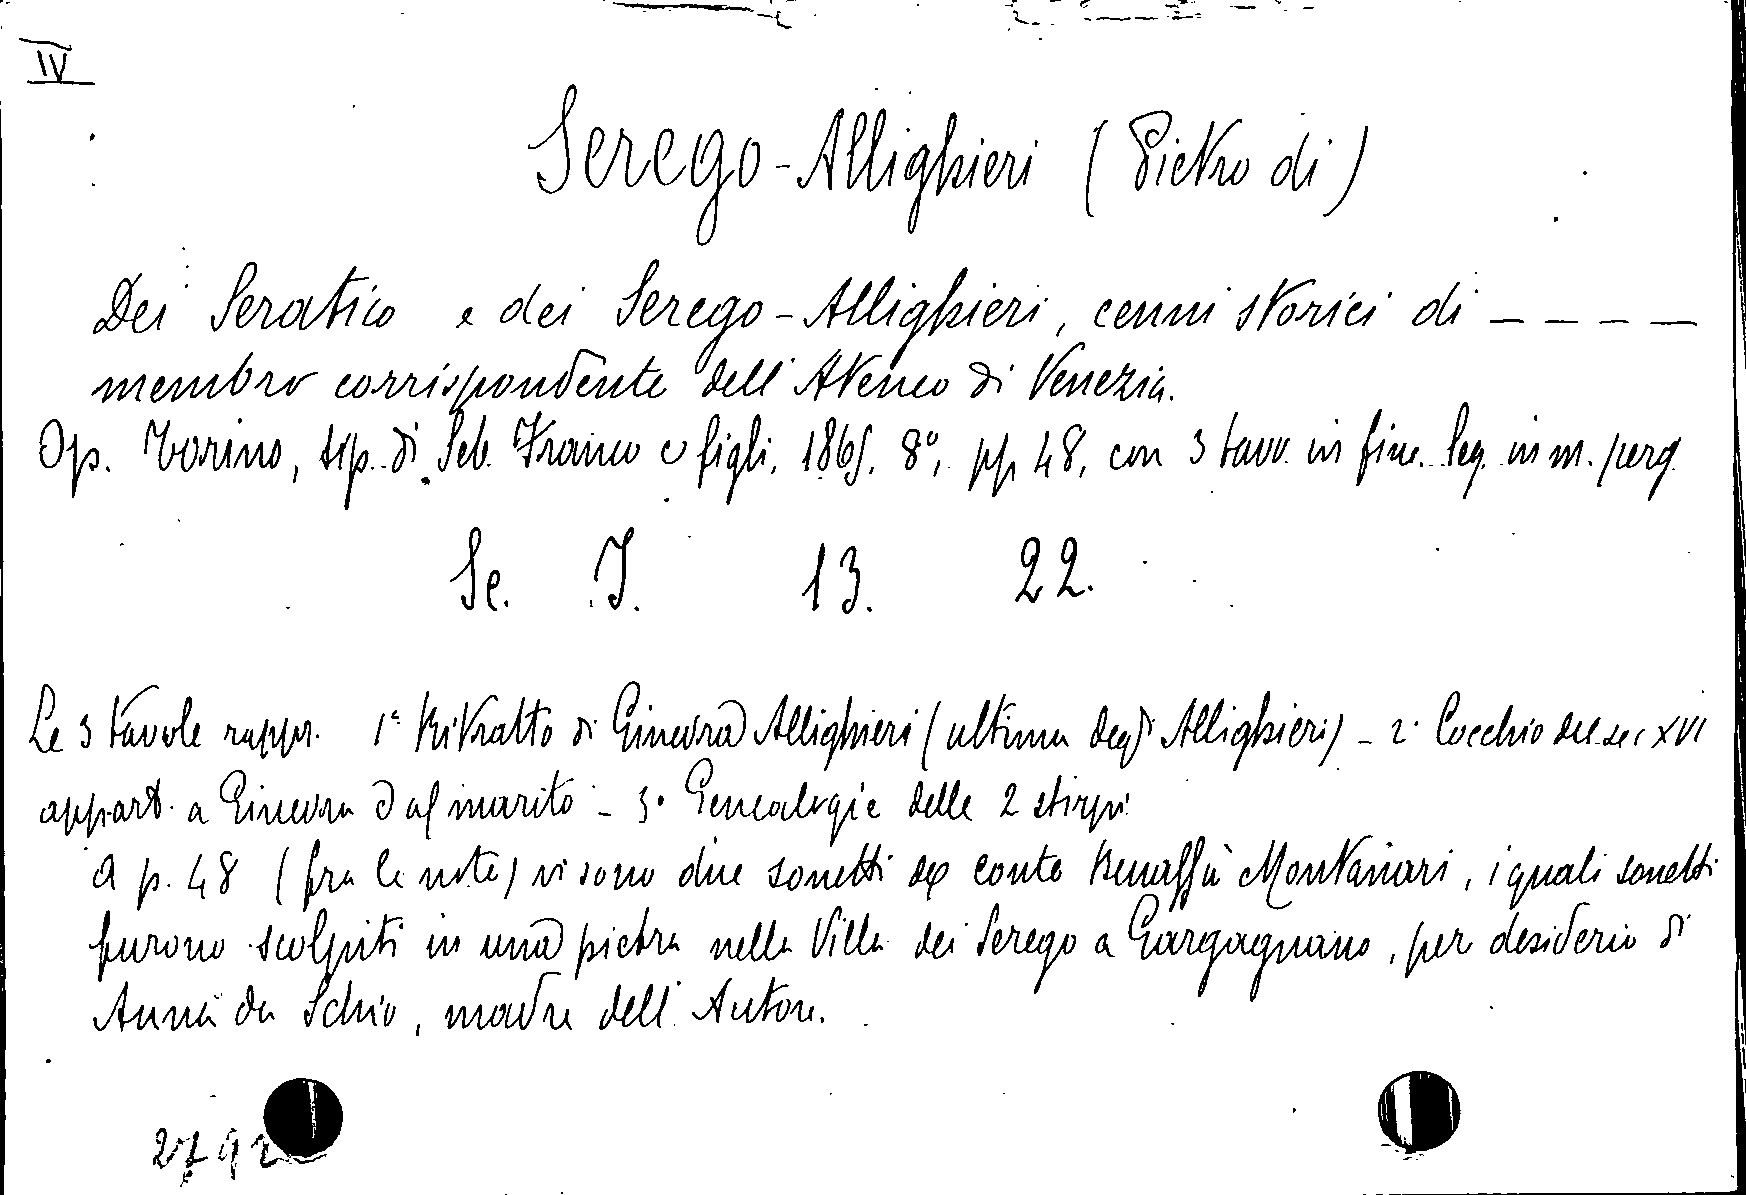 IV
Serego-Allighieri (Pietro di)
Dei Seratico e dei Serego-Allighieri, cenni storici di _ _ _ _
membro corrispondente dell'Ateneo di Venezia.
Op. Torino, tip. di Seb. Franco e figli, 1865, 8°, pp. 48, con 3 tavv. in fine. leg. in m. perg
Se. I. 13. 22.
Le 3 tavole rappr. 1ª Ritratto di Ginevra Allighieri (ultima degli Allighieri) - 2ª Cocchio del sec XVI
appart. a Ginevra dal marito - 3ª Genealogie delle 2 stirpi
A p. 48 (fra le note) vi sono due sonetti del conte Benassù Montanari, i quali sonetti
furono scolpiti in una pietra nella Villa dei Serego a Gargagnano, per desiderio di
Anna da Schio, madre dell'Autore.